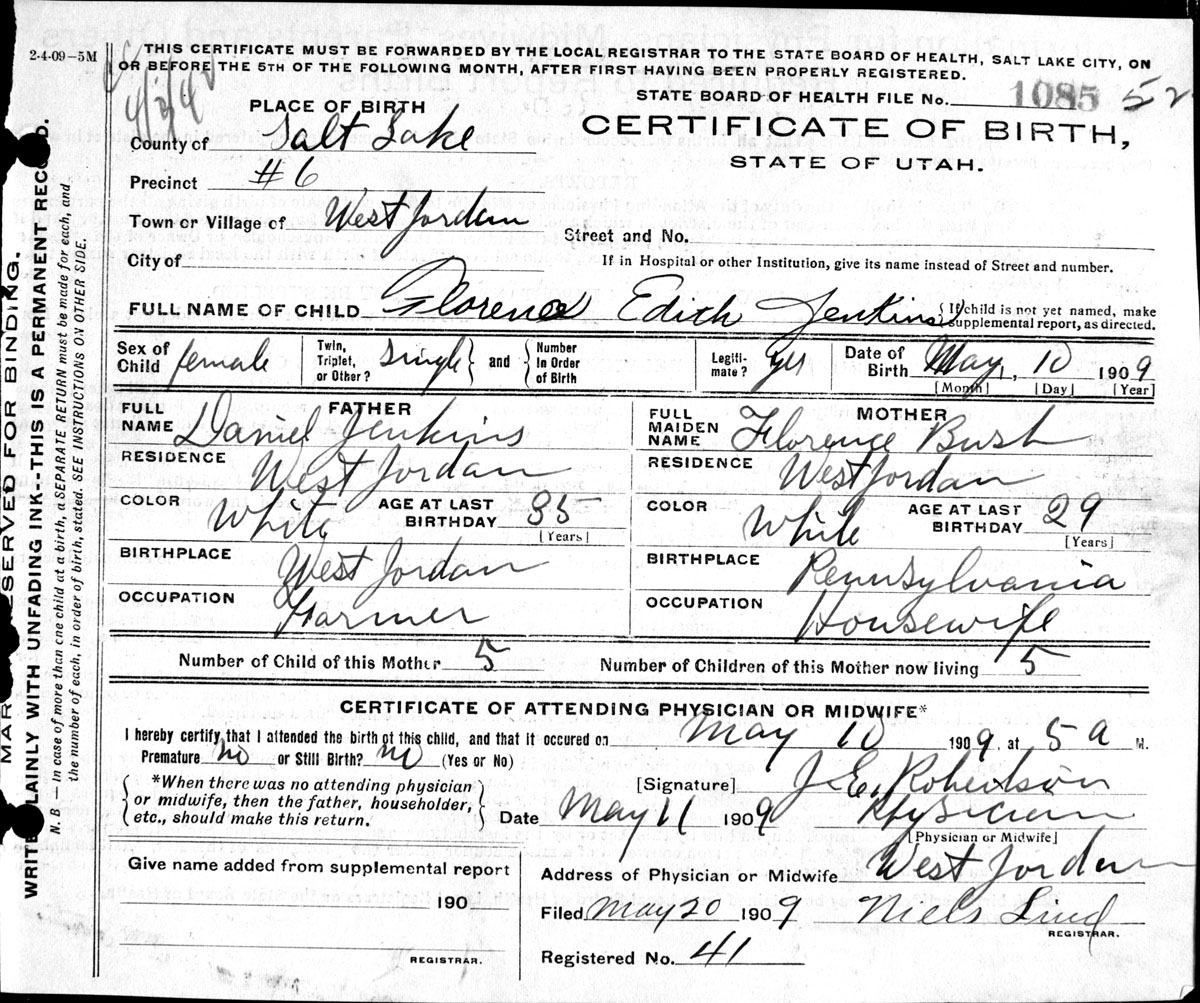 2-4-09-5M
THIS CERTIFICATE MUST BE FORWARDED BY THE LOCAL REGISTRAR TO THE STATE BOARD OF HEALTH, SALT LAKE CITY, ON
OR BEFORE THE 5TH OF THE FOLLOWING MONTH, AFTER FIRST HAVING BEEN PROPERLY REGISTERED.
STATE BOARD OF HEALTH FILE No. 1085 52
CERTIFICATE OF BIRTH,
STATE OF UTAH.
PLACE OF BIRTH
County of Salt Lake
Precinct #6
Town or Village of West Jordan
Street and No.
City of
If in Hospital or other Institution, give its name instead of Street and number.
FULL NAME OF CHILD Florence Edith Jenkins { If child is not yet named, make supplemental report, as directed.
Sex of Child female Twin, Triplet, or Other? Single } and { Number in Order of Birth Legitimate? yes Date of Birth May, 10 1909
[Month] [Day] [Year]
FATHER
FULL NAME Daniel Jenkins
RESIDENCE West Jordan
COLOR White AGE AT LAST BIRTHDAY 35
[Years]
BIRTHPLACE West Jordan
OCCUPATION Farmer
MOTHER
FULL MAIDEN NAME Florence Bush
RESIDENCE West Jordan
COLOR White AGE AT LAST BIRTHDAY 29
[Years]
BIRTHPLACE Pennsylvania
OCCUPATION Housewife
Number of Child of this Mother 5 Number of Children of this Mother now living 5
CERTIFICATE OF ATTENDING PHYSICIAN OR MIDWIFE*
I hereby certify that I attended the birth of this child, and that it occured on May 10 1909, at 5 a M.
Premature no or Still Birth? no (Yes or No)
*When there was no attending physician
or midwife, then the father, householder,
etc., should make this return.
[Signature] J.E. Robertson
Date May 11 1909 Physician
[Physician or Midwife]
Give name added from supplemental report
190
REGISTRAR.
Address of Physician or Midwife West Jordan
Filed May 20 1909 Niels Lind
REGISTRAR.
Registered No. 41
SERVED FOR BINDING.
WRITE PLAINLY WITH UNFADING INK--THIS IS A PERMANENT RECORD.
N. B.—In case of more than one child at a birth, a SEPARATE RETURN must be made for each, and
the number of each, in order of birth, stated. SEE INSTRUCTIONS ON OTHER SIDE.